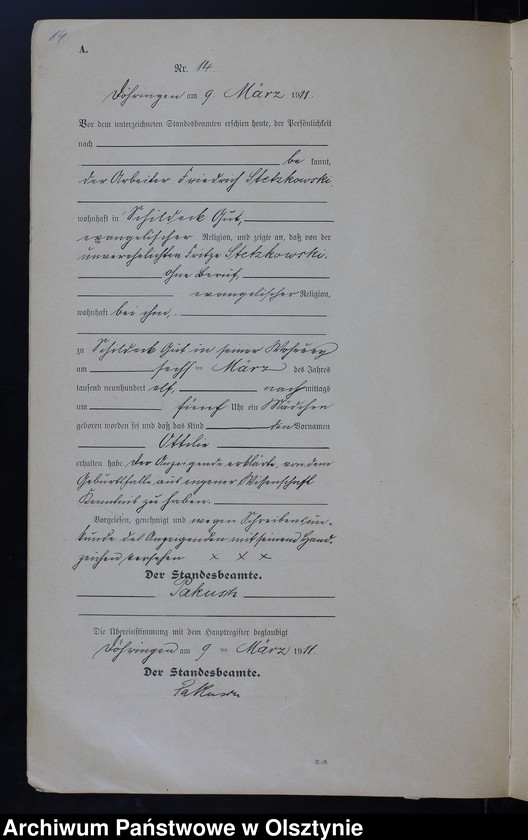 14
A.
Nr. 14
Döhringen am 9. März 1911.
Vor dem unterzeichneten Standesbeamten erschien heute, der Persönlichkeit
nach
be kannt,
der Arbeiter Friedrich Stetzkowski,
wohnhaft in Schildeck Gut,
evangelischer Religion, und zeigte an, daß von der
unverehelichten Stetzkowski,
ohne Beruf,
evangelischer Religion,
wohnhaft bei ihm,
zu Schildeck Gut in seiner Wohnung
am sechsten März des Jahres
tausend neunhundert elf, nachmittags
um fünf Uhr ein Mädchen
geboren worden sei und daß das Kind den Vornamen
Ottilie
erhalten habe. Der Anzeigende erklärte, von dem
Geburtsfalle aus eigener Wissenschaft
Kenntnis zu haben.
Vorgelesen, genehmigt und wegen Schreibensun-
kunde des Anzeigenden mit seinem Hand-
zeichen versehen x x x
Der Standesbeamte.
Pakusch
Die Übereinstimmung mit dem Hauptregister beglaubigt
Döhringen am 9ten März 1911.
Der Standesbeamte.
Pakusch
Archiwum Państwowe w Olsztynie